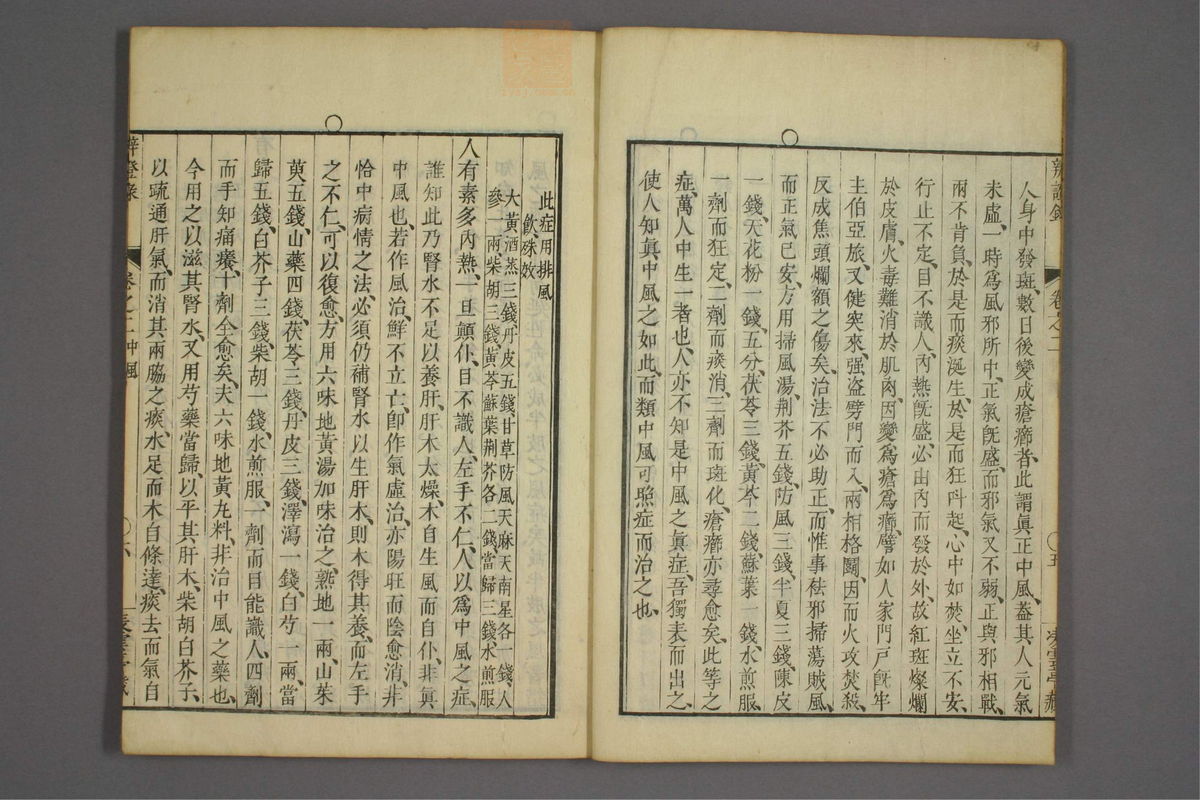 辨證錄 卷之二 五
人身中發斑、數日後變成瘡癤者、此謂眞正中風、葢其人元氣
未虛、一時爲風邪所中、正氣旣盛、而邪氣又不弱、正與邪相戰、
兩不肯負、於是而痰涎生、於是而狂呌起、心中如焚、坐立不安、
行止不定、目不識人、內熱旣盛、必由內而發於外、故紅斑燦爛
於皮膚、火毒難消於肌肉、因變爲瘡爲癤、譬如人家門戸旣牢
主伯亞旅又健、突來强盗劈門而入、兩相格鬬、因而火攻焚殺、
反成焦頭爛額之傷矣、治法不必助正、而惟事祛邪掃蕩賊風、
而正氣已安、方用掃風湯、荆芥五錢、防風三錢、半夏三錢、陳皮
一錢、天花粉一錢五分、茯苓三錢、黃芩二錢、蘇葉一錢、水煎服、
一劑而狂定、二劑而痰消、三劑而斑化、瘡癤亦尋愈矣、此等之
症、萬人中生一者也、人亦不知是中風之眞症、吾獨表而出之、
使人知眞中風之如此、而類中風可照症而治之也、
此症用排風
飲殊效
大黃酒蒸三錢丹皮五錢、甘草防風天麻天南星各一錢、人
參一兩柴胡三錢、黃芩蘇葉荆芥各二錢、當歸三錢、水煎服
人有素多內熱、一旦顛仆、目不識人、左手不仁、人以爲中風之症、
誰知此乃腎水不足以養肝、肝木太燥、木自生風而自仆、非眞
中風也、若作風治、鮮不立亡、卽作氣虛治、亦陽旺而陰愈消、非
恰中病情之法、必須仍補腎水以生肝木、則木得其養、而左手
之不仁、可以復愈、方用六味地黃湯加味治之、熟地一兩、山茱
萸五錢、山藥四錢、茯苓三錢、丹皮三錢、澤瀉一錢、白芍一兩、當
歸五錢、白芥子三錢、柴胡一錢、水煎服、一劑而目能識人、四劑
而手知痛癢、十劑全愈矣、夫六味地黃丸料、非治中風之藥也、
今用之以滋其腎水、又用芍藥當歸、以平其肝木、柴胡白芥子、
以疏通肝氣、而消其兩脇之痰、水足而木自條達、痰去而氣自
辨證錄 卷之二中風 六